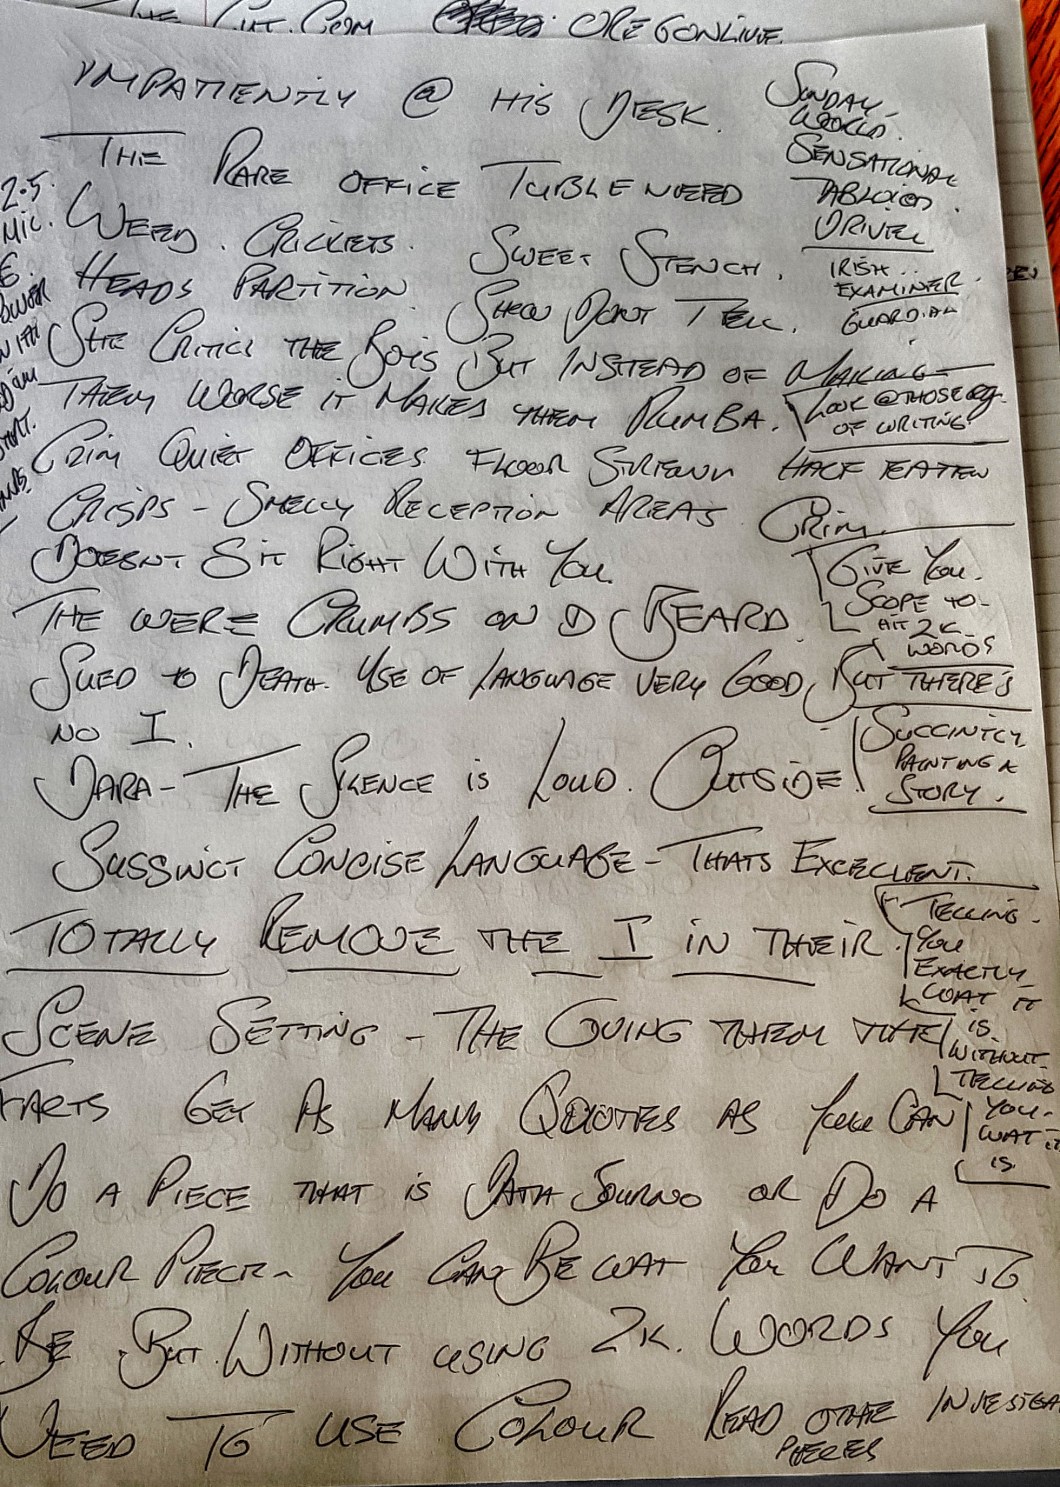 THE CUT.COM OREGONLIVE.
IMPATIENTLY @ HIS DESK.
THE RARE OFFICE TUBLENEED
WEED. CRICKETS. SWEET STENCH.
HEADS PARTITION. SHOW DONT TELL.
SHE CRITICI THE BOIS BUT INSTEAD OF MAKING
THEM WORSE IT MAKES THEM RUMBA.
GRIM QUIET OFFICES FLOOR STREWN HALF EATEN
CRISPS - SMELLY RECEPTION AREAS GRIM
DOESNT SIT RIGHT WITH YOU.
THE WERE CRUMBS ON D BEARD.
SUED TO DEATH. USE OF LANGUAGE VERY GOOD, BUT THERE'S
NO I.
DARA - THE SILENCE IS LOUD. OUTSIDE
SUSSINCT CONCISE LANGUAGE - THATS EXCECLENT.
TOTALLY REMOVE THE I IN THEIR
SCENE SETTING - THE GUING THEM THE
FARTS GET AS MANY QUOTES AS YOU CAN
DO A PIECE THAT IS DATA JOURNO OR DO A
COLOUR PIECE - YOU CAN BE WAT YOU WANT TO
BE BUT WITHOUT USING 2K. WORDS YOU
NEED TO USE COLOUR READ OTHE INVESTIGA
PIECES
SUNDAY
WORLD.
SENSATIONAL
TABLOID.
DRIVEL
IRISH..
EXAMINER.
GUARDIAN
LOOK @ THOSE eg.
OF WRITING
GIVE YOU.
SCOPE TO
AIT 2K
WORDS
SUCCINTLY
PAINTING A
STORY.
TELLING
YOU
EXACTLY
WAT IT
IS
WITHOUT
TELLING
YOU
WAT IT
IS
2.5.
MIC.
6.
POWER
WITH
START.